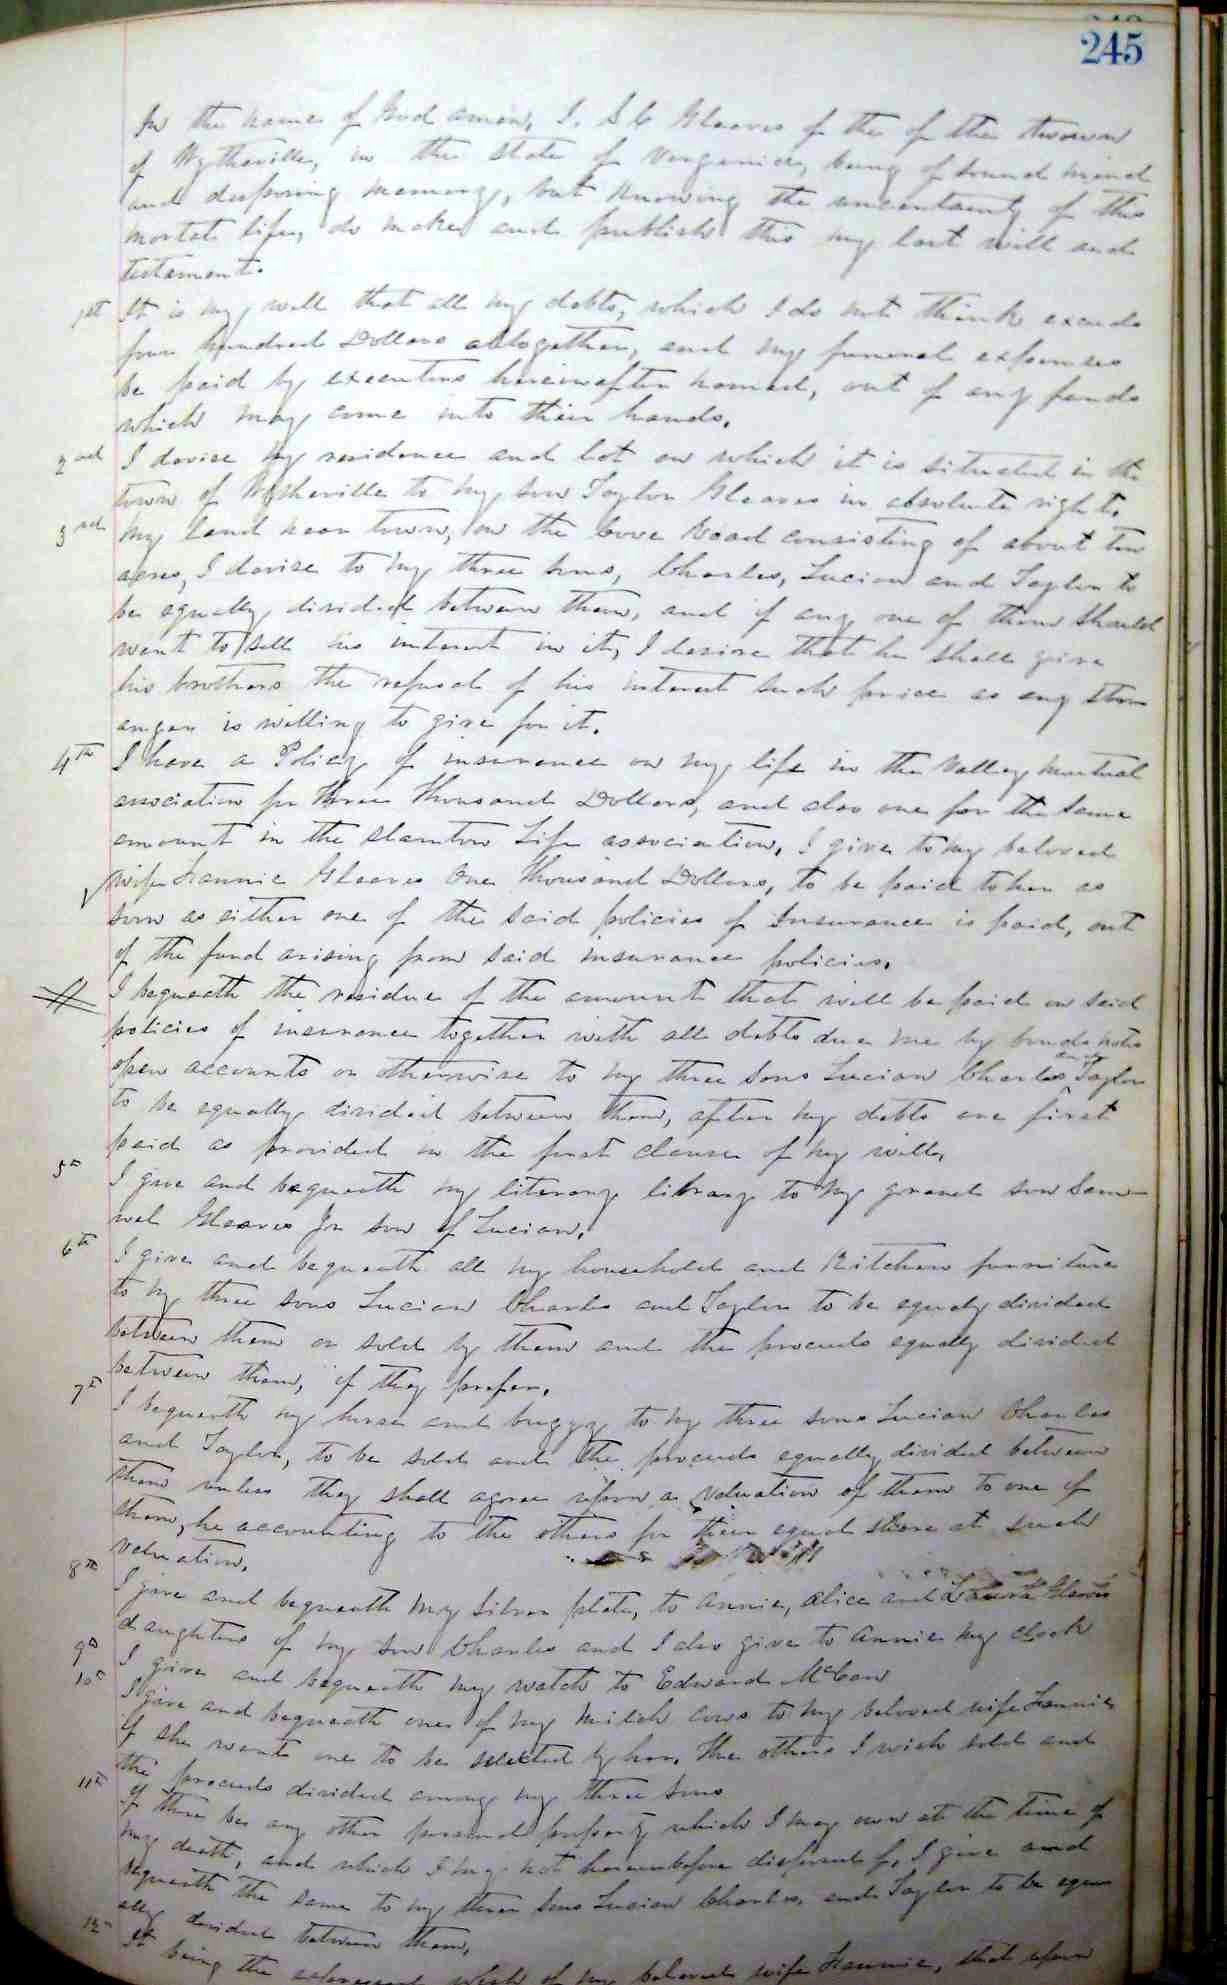 245
In the name of God amen, I. S C Gleaves of the of the town
of Wytheville, in the state of Virginia, being of sound mind
and disposing memory, but knowing the uncertainty of this
mortal life, do make and publish this my last will and
testament.
1st It is my will that all my debts, which I do not think exceeds
four hundred Dollars altogether, and my funeral expenses
be paid by executors hereinafter named, out of any funds
which may come into their hands.
2nd I devise my residence and lot on which it is situated in the
town of Wytheville to my son Taylor Gleaves in absolute right.
3rd My land near town, on the Cove Road consisting of about ten
acres, I devise to my three sons, Charles, Lucian and Taylor to
be equally divided between them, and if any one of them should
want to sell his interest in it, I desire that he shall give
his brothers the refusal of his interest such price as any str
anger is willing to give for it.
4th I have a Policy of insurance on my life in the Valley Mutual
association for three thousand Dollars, and also one for the same
amount in the Staunton Life association. I give to my beloved
wife Fannie Gleaves One thousand Dollars, to be paid to her as
soon as either one of the said policies of Insurance is paid, out
of the fund arising from said insurance policies.
I bequeath the residue of the amount that will be paid on said
policies of insurance together with all debts due me by bonds notes
open accounts or otherwise to my three sons Lucian Charles and Taylor
to be equally divided between them, after my debts are first
paid as provided in the first clause of my will.
5th I give and bequeath my literary library to my grand son Sam-
uel Gleaves Jr son of Lucian.
6th I give and bequeath all my household and Kitchen furniture
to my three sons Lucian Charles and Taylor to be equaly divided
between them or sold by them and the proceeds equally divided
between them, if they prefer.
7th I bequeath my horse and buggy to my three sons Lucian Charles
and Taylor, to be sold and the proceeds equally divided between
them unless they shall agree upon a valuation of them to one of
them, he accounting to the others for their equal share at such
valuation.
8th I give and bequeath my Silver plate, to Annie, Alice and Laura Gleaves
daughters of my son Charles and I also give to Annie my clock
9th I give and bequeath my watch to Edward McGav
10th I give and bequeath one of my milch cows to my beloved wife Fannie
if she wants one to be selected by her. The others I wish sold and
the proceeds divided among my three sons
11th If there be any other personal property which I may own at the time of
my death, and which I may not hereinbefore disposed of, I give and
bequeath the same to my three sons Lucian Charles, and Taylor to be equ
ally divided between them.
12th It being the wish of my beloved wife Fannie, that upon